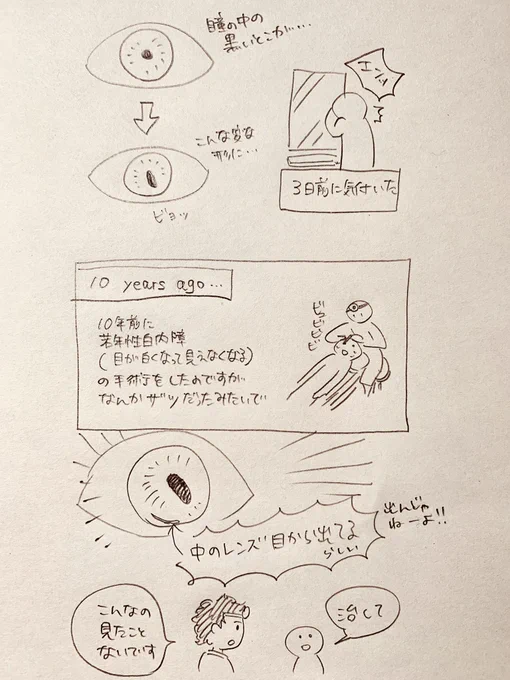 瞳の中の
黒いとこが…
こんな変な
形に…
ビョッ
エッ!
3日前に気付いた
10 years ago…
10年前に
若年性白内障
(目が白くなって見えなくなる)
の手術をしたのですが
なんかザツだったみたいで
ビビビビ
中のレンズ目から出てる
らしい
出んじゃ
ねーよ!!
こんなの
見たこと
ないです
治して